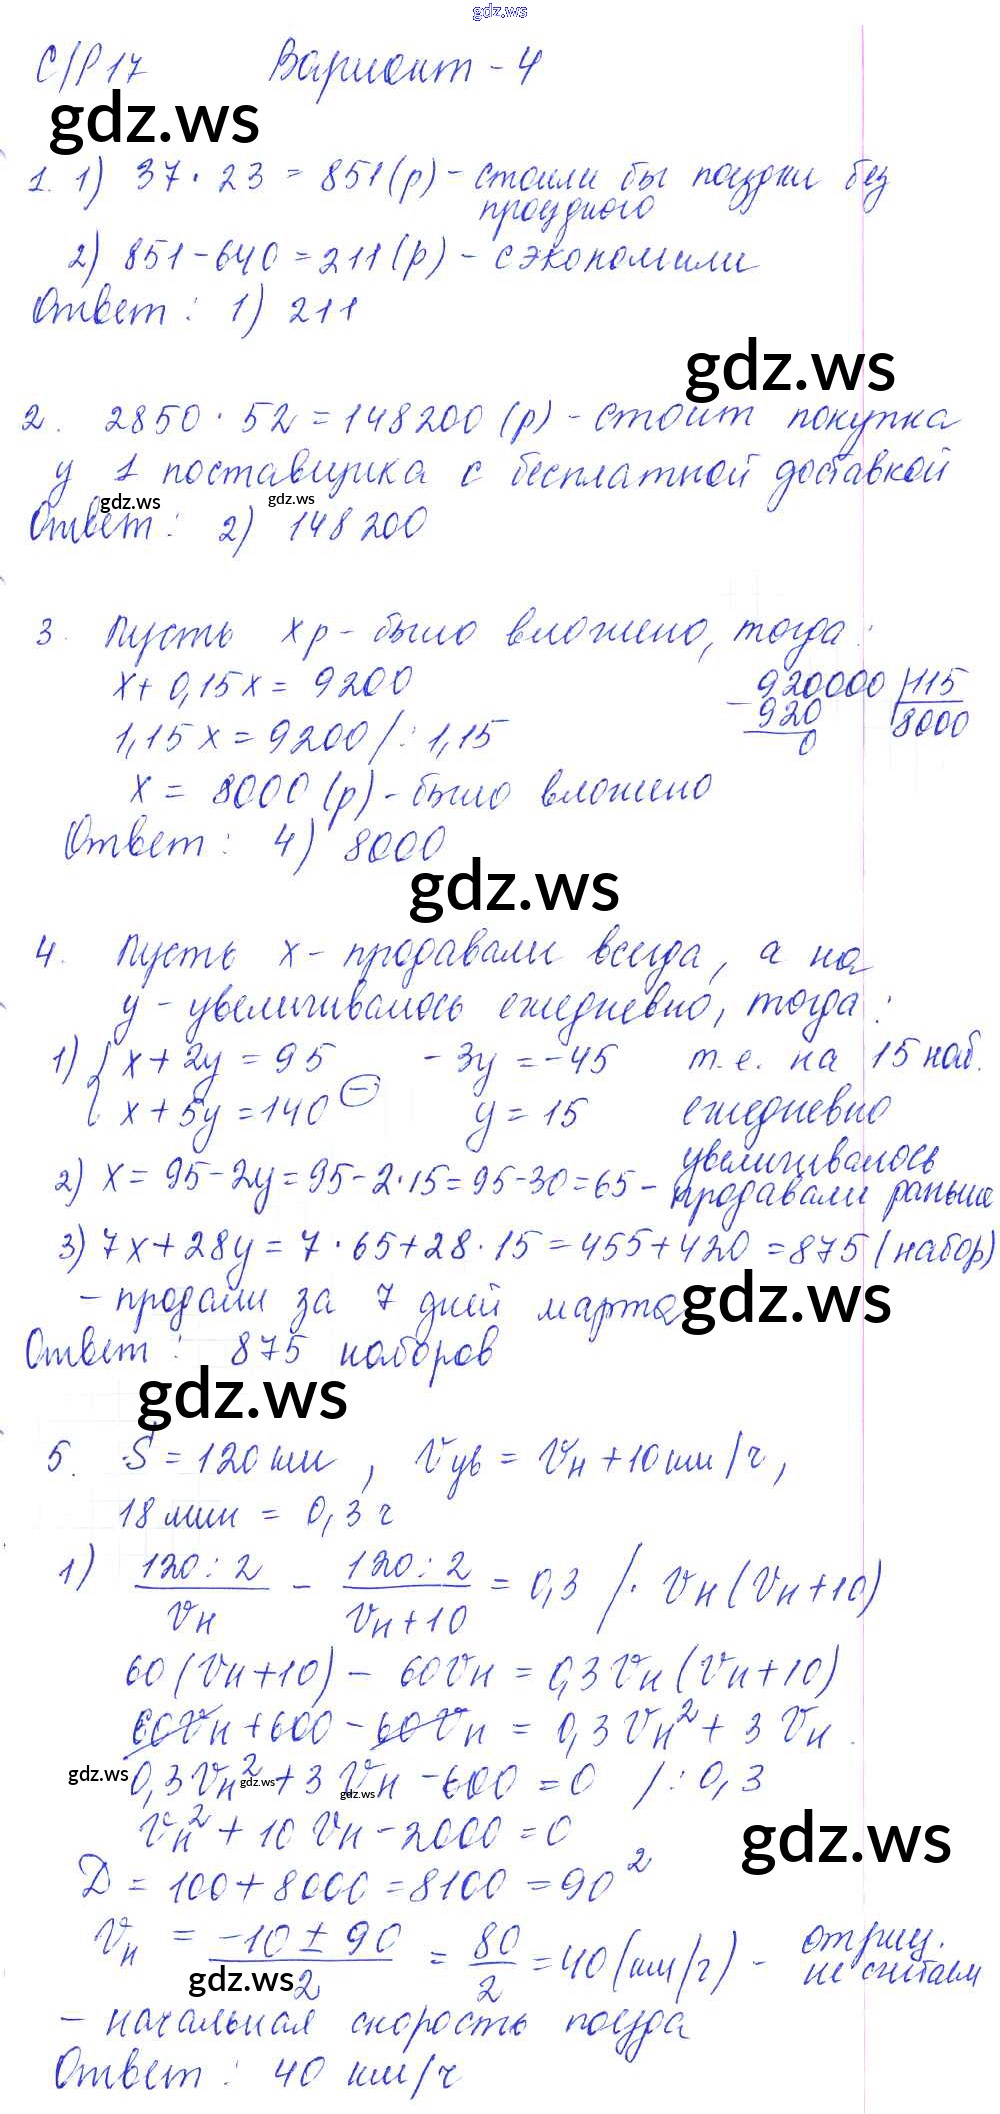 gdz.ws
С/Р 17 Вариант - 4
gdz.ws
1. 1) 37 · 23 = 851 (р) - стоили бы поездки без
проездного
2) 851 - 640 = 211 (р) - сэкономили
Ответ : 1) 211
gdz.ws
2. 2850 · 52 = 148200 (р) - стоит покупка
у 1 поставщика с бесплатной доставкой
gdz.ws gdz.ws
Ответ : 2) 148 200
3. Пусть х р - было вложено, тогда :
х + 0,15 х = 9200
1,15 х = 9200 / : 1,15
920000 | 115
- 920 8000
0
х = 8000 (р) - было вложено
Ответ : 4) 8000
gdz.ws
4. Пусть х - продавали всегда, а на
у - увеличивалось ежедневно, тогда :
1) { х + 2у = 95 - 3у = -45 т.е. на 15 наб.
х + 5у = 140 (-) у = 15 ежедневно
увеличивалось
2) х = 95 - 2у = 95 - 2 · 15 = 95 - 30 = 65 - продавали раньше
3) 7х + 28у = 7 · 65 + 28 · 15 = 455 + 420 = 875 (набор)
- продали за 7 дней марта
gdz.ws
Ответ : 875 наборов
gdz.ws
5. S = 120 км , Vув = Vн + 10 км/ч ,
18 мин = 0,3 ч
1) 120 : 2 / Vн - 120 : 2 / Vн + 10 = 0,3 / · Vн (Vн + 10)
60 (Vн + 10) - 60Vн = 0,3Vн (Vн + 10)
60Vн + 600 - 60Vн = 0,3Vн² + 3Vн .
gdz.ws gdz.ws gdz.ws
0,3Vн² + 3Vн - 600 = 0 / : 0,3
Vн² + 10Vн - 2000 = 0
gdz.ws
D = 100 + 8000 = 8100 = 90²
Vн = -10 ± 90 / 2 = 80 / 2 = 40 (км/ч) - отриц.
не считаем
gdz.ws
- начальная скорость поезда
Ответ : 40 км/ч